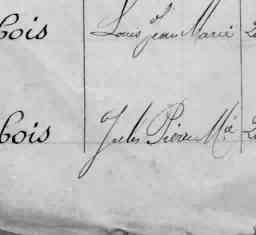 bois Louis Jean Marie
bois Jules Pierre Mie